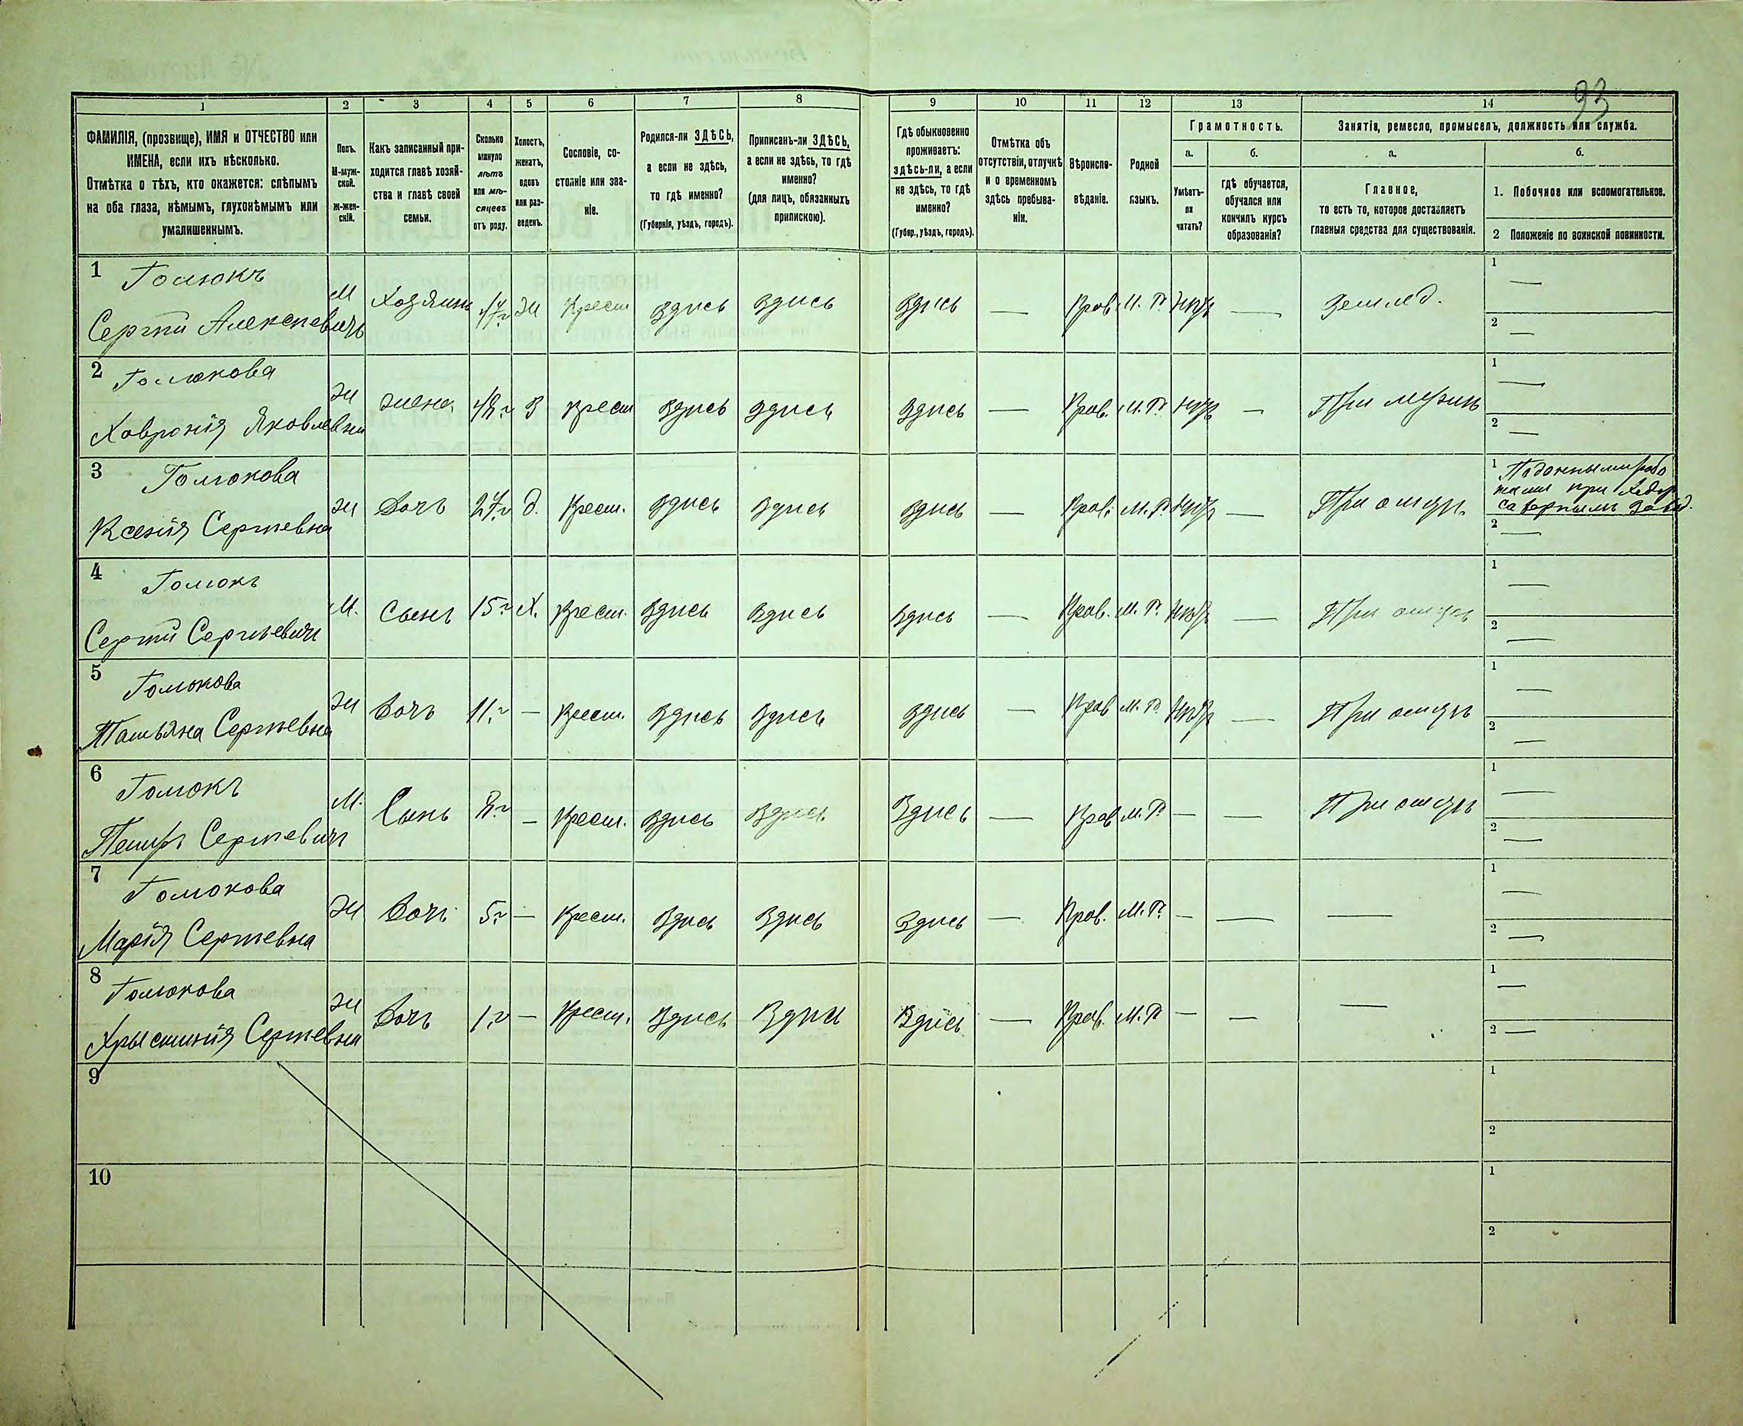 93
1 2 3 4 5 6 7 8 9 10 11 12 13 14
ФАМИЛІЯ, (прозвище), ИМЯ и ОТЧЕСТВО или
ИМЕНА, если ихъ нѣсколько.
Отмѣтка о тѣхъ, кто окажется: слѣпымъ
на оба глаза, нѣмымъ, глухонѣмымъ или
умалишеннымъ.
Полъ.
М-муж-
ской.
ж-жен-
скій.
Какъ записанный при-
ходится главѣ хозяй-
ства и главѣ своей
семьи.
Сколько
минуло
лѣтъ
или мѣ-
сяцевъ
отъ роду.
Холостъ,
женатъ,
вдовъ
или раз-
веденъ.
Сословіе, со-
стояніе или зва-
ніе.
Родился-ли ЗДѢСЬ,
а если не здѣсь,
то гдѣ именно?
(Губернія, уѣздъ, городъ).
Приписанъ-ли ЗДѢСЬ,
а если не здѣсь, то гдѣ
именно?
(для лицъ, обязанныхъ
припискою).
Гдѣ обыкновенно
проживаетъ:
здѣсь-ли, а если
не здѣсь, то гдѣ
именно?
(Губер., уѣздъ, городъ).
Отмѣтка объ
отсутствіи, отлучкѣ
и о временномъ
здѣсь пребыва-
ніи.
Вѣроиспо-
вѣданіе.
Родной
языкъ.
Грамотность.
а.
Умѣетъ-
ли
читать?
б.
гдѣ обучается,
обучался или
кончилъ курсъ
образованія?
Занятіе, ремесло, промыселъ, должность или служба.
а.
Главное,
то есть то, которое доставляетъ
главныя средства для существованія.
б.
1. Побочное или вспомогательное.
2 Положеніе по воинской повинности.
1 Голюкъ
Сергѣй Алексѣевичъ М Хозяинъ ж Крест здѣсь здѣсь здѣсь — Прав. М. Р. нѣтъ — Землед. 1 — 2 —
2 Голюкова
Хавронія Яковлевна ж жена З Крест здѣсь здѣсь здѣсь — Прав. М. Р. нѣтъ — При мужѣ 1 — 2 —
3 Голюкова
Ксенія Сергѣевна ж Дочь д. Крест. здѣсь здѣсь здѣсь — Прав. М. Р. нѣтъ — При отцѣ 1
2 —
4 Голюкъ
Сергѣй Сергѣевичъ М. Сынъ 15 г Х. Крест. здѣсь здѣсь здѣсь — Прав. М. Р. нѣтъ — При отцѣ 1 — 2 —
5 Голюкова
Татьяна Сергѣевна ж Дочь 11 г — Крест. здѣсь здѣсь здѣсь — Прав М. Р. нѣтъ — При отцѣ 1 — 2 —
6 Голюкъ
Петръ Сергѣевичъ М. Сынъ 8 г — Крест. здѣсь здѣсь здѣсь — Прав М. Р. — — При отцѣ 1 — 2 —
7 Голюкова
Марія Сергѣевна ж Дочь 5 г — Крест. здѣсь здѣсь здѣсь — Прав. М. Р. — — — 1 — 2 —
8 Голюкова
Хрыстинія Сергѣевна ж Дочь 1 г — Крест. здѣсь здѣсь здѣсь — Прав. М. Р — — — 1 — 2 —
9 1 2
10 1 2